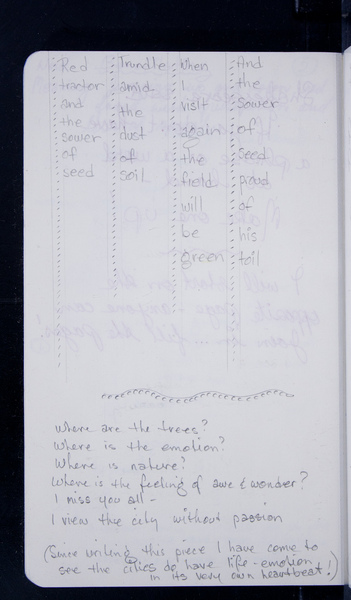 Red
tractor
and
the
sower
of
seed
Trundle
amid
the
dust
of
soil
When
I
visit
again
the
field
will
be
green
And
the
sower
of
seed
proud
of
his
toil
Where are the trees?
Where is the emotion?
Where is nature?
Where is the feeling of awe & wonder?
I miss you all -
I view the city without passion
(Since writing this piece I have come to
see the cities do have life - emotion
in its very own heartbeat!)